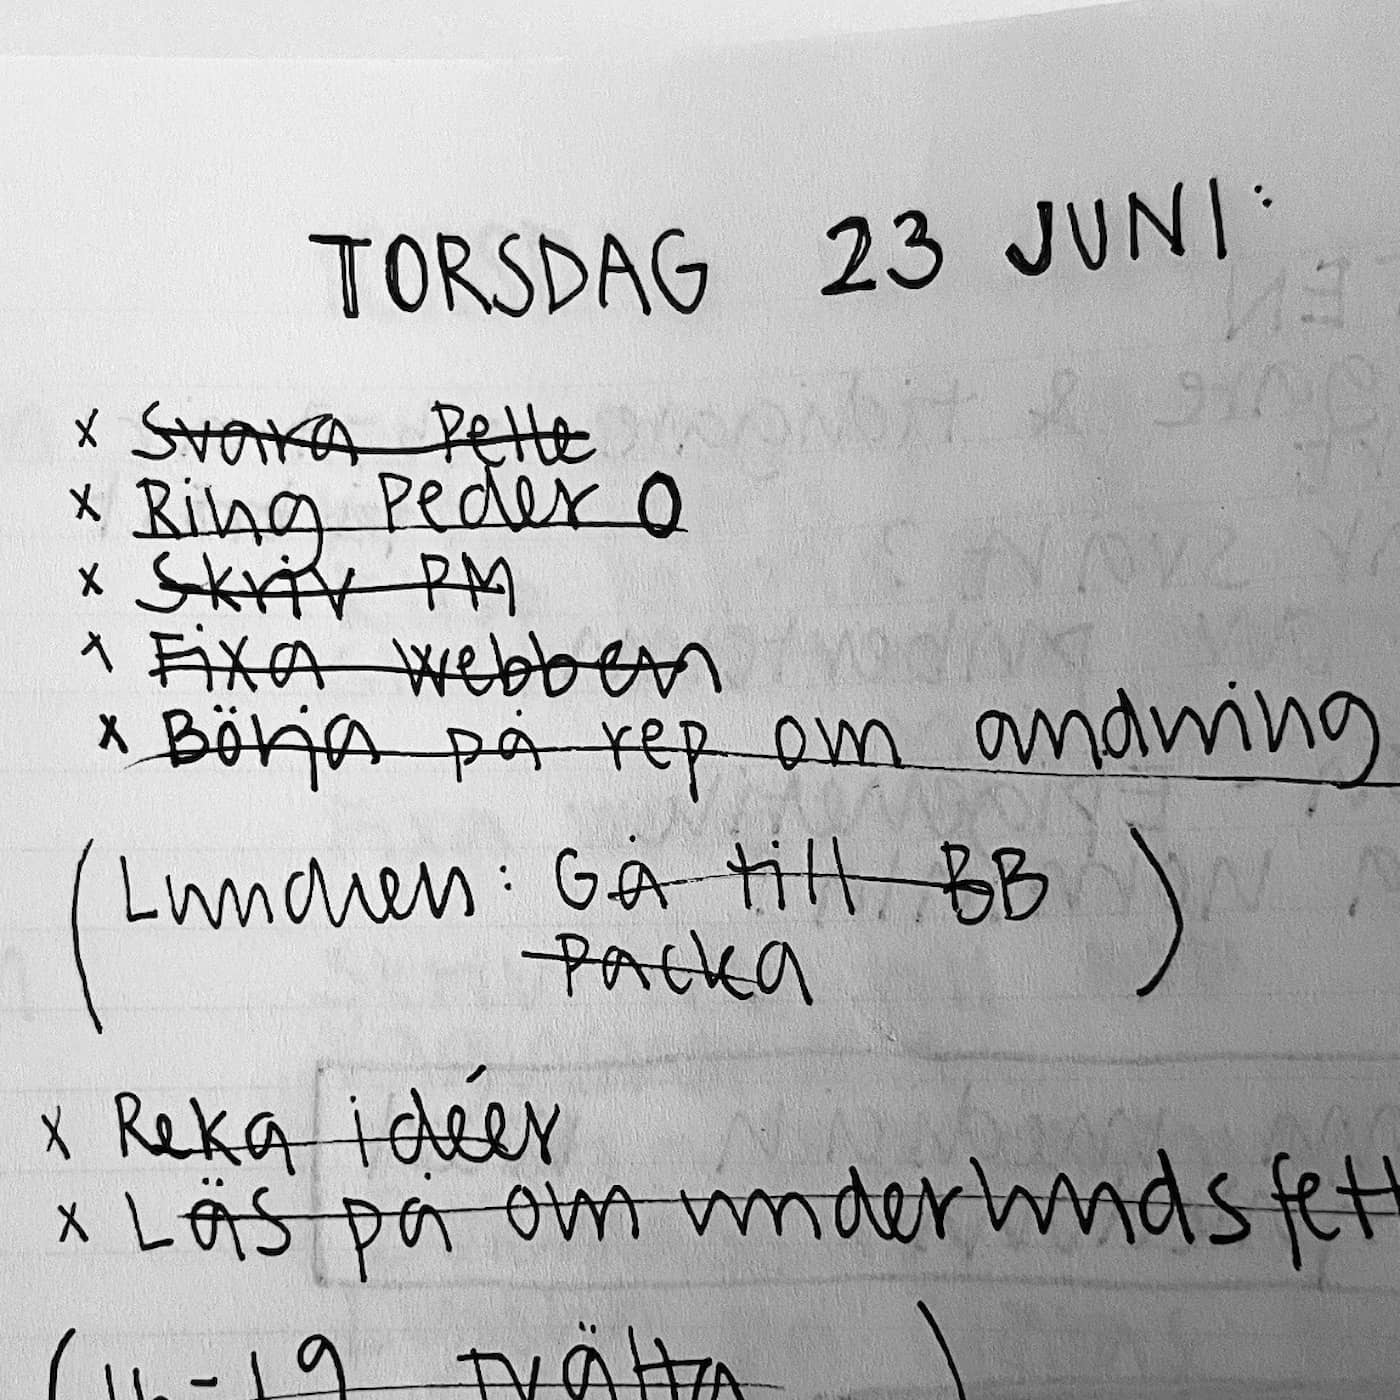 TORSDAG 23 JUNI:
x Svara Pelle
x Ring Peder O
x Skriv PM
x Fixa webben
x Börja på rep om andning
(Lunchen: Gå till BB
Packa)
x Reka idéer
x Läs på om underhudsfett
(16-19 tvätta)